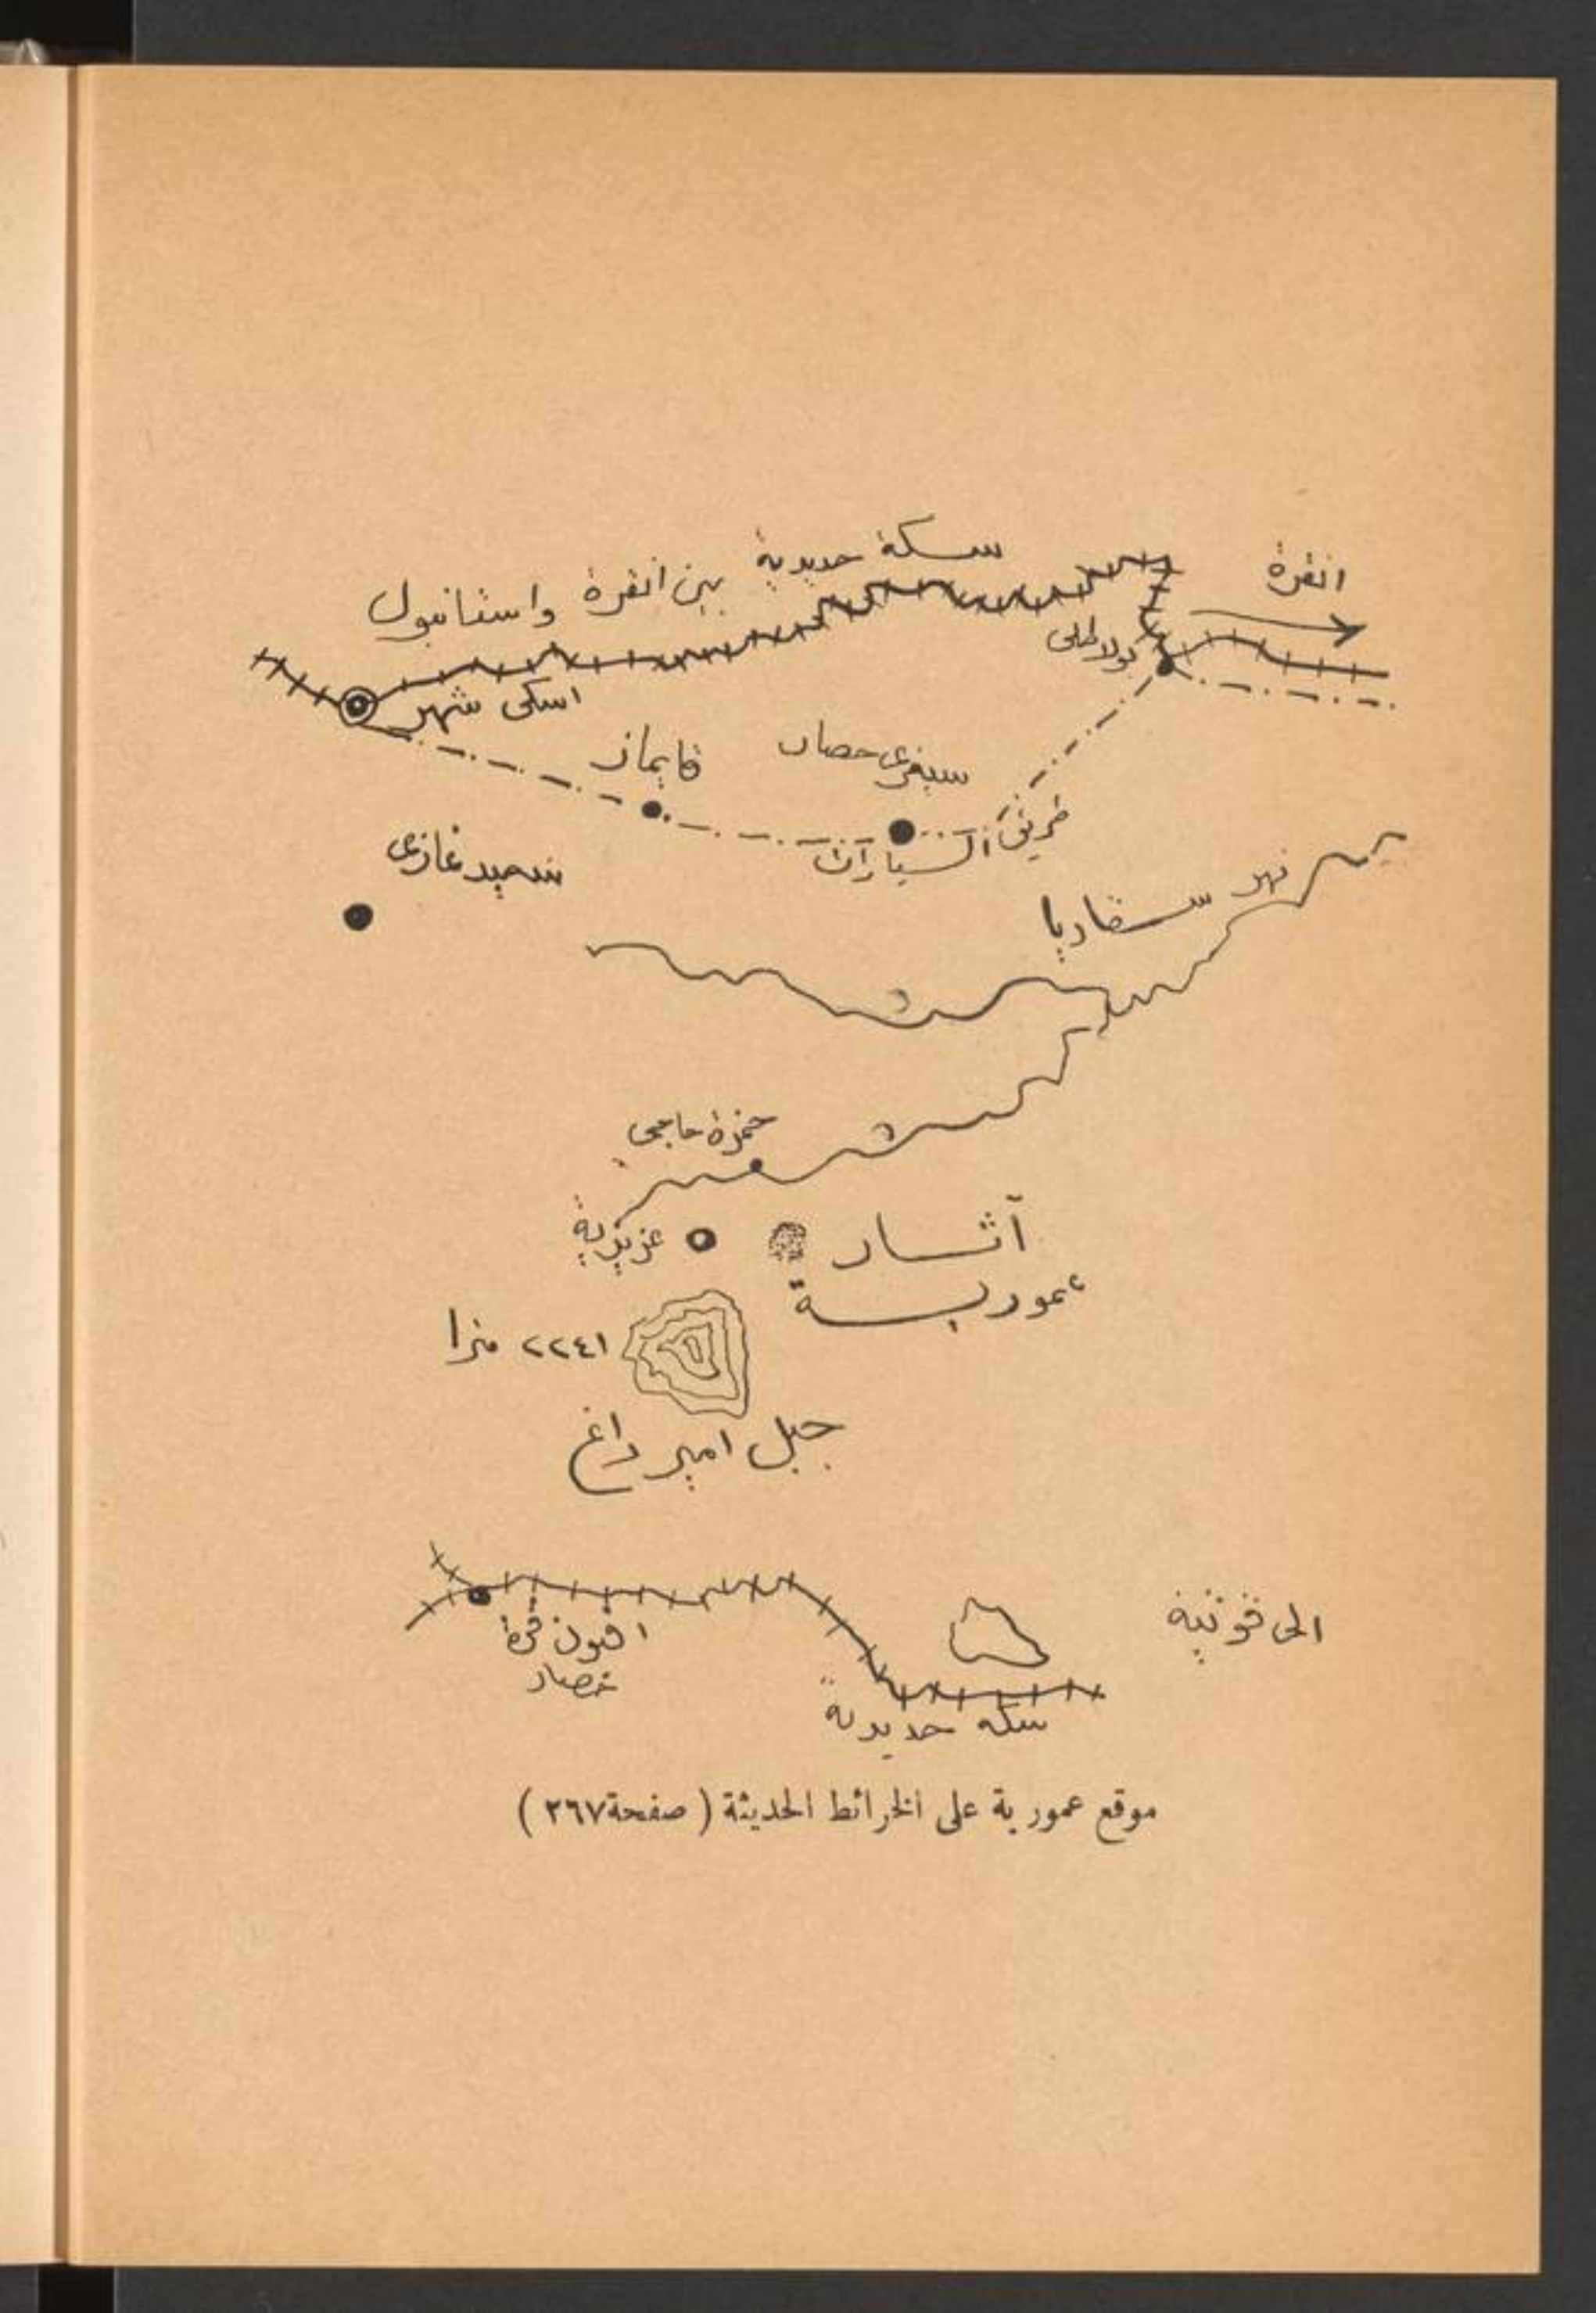 سكة حديدية بين انقرة واستانبول
انقرة
بولاطلى
اسكى شهر
قايماز
سيفرى حصار
طريق السيارات
سيد غازى
نهر سقاريا
حمزة حاجي
عزيزية
آثار
عمورية
٢٢٤١ مترا
جبل امير داغ
افيون قرة
حصار
الى قونية
سكة حديدية
موقع عمورية على الخرائط الحديثة ( صفحة ٢٦٧ )